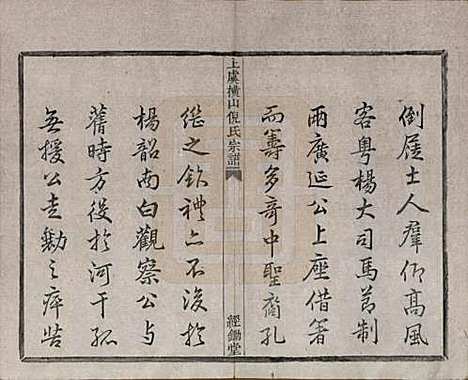 倒屣士人羣仰高風
客粤楊大司馬節制
兩廣延公上座借箸
而籌多奇中聖裔孔
上虞横山倪氏宗譜
經鋤堂
繼之欽禮亦不後於
楊韶南白觀察公與
舊時方後於河干孤
無援公走勷之瘁苦